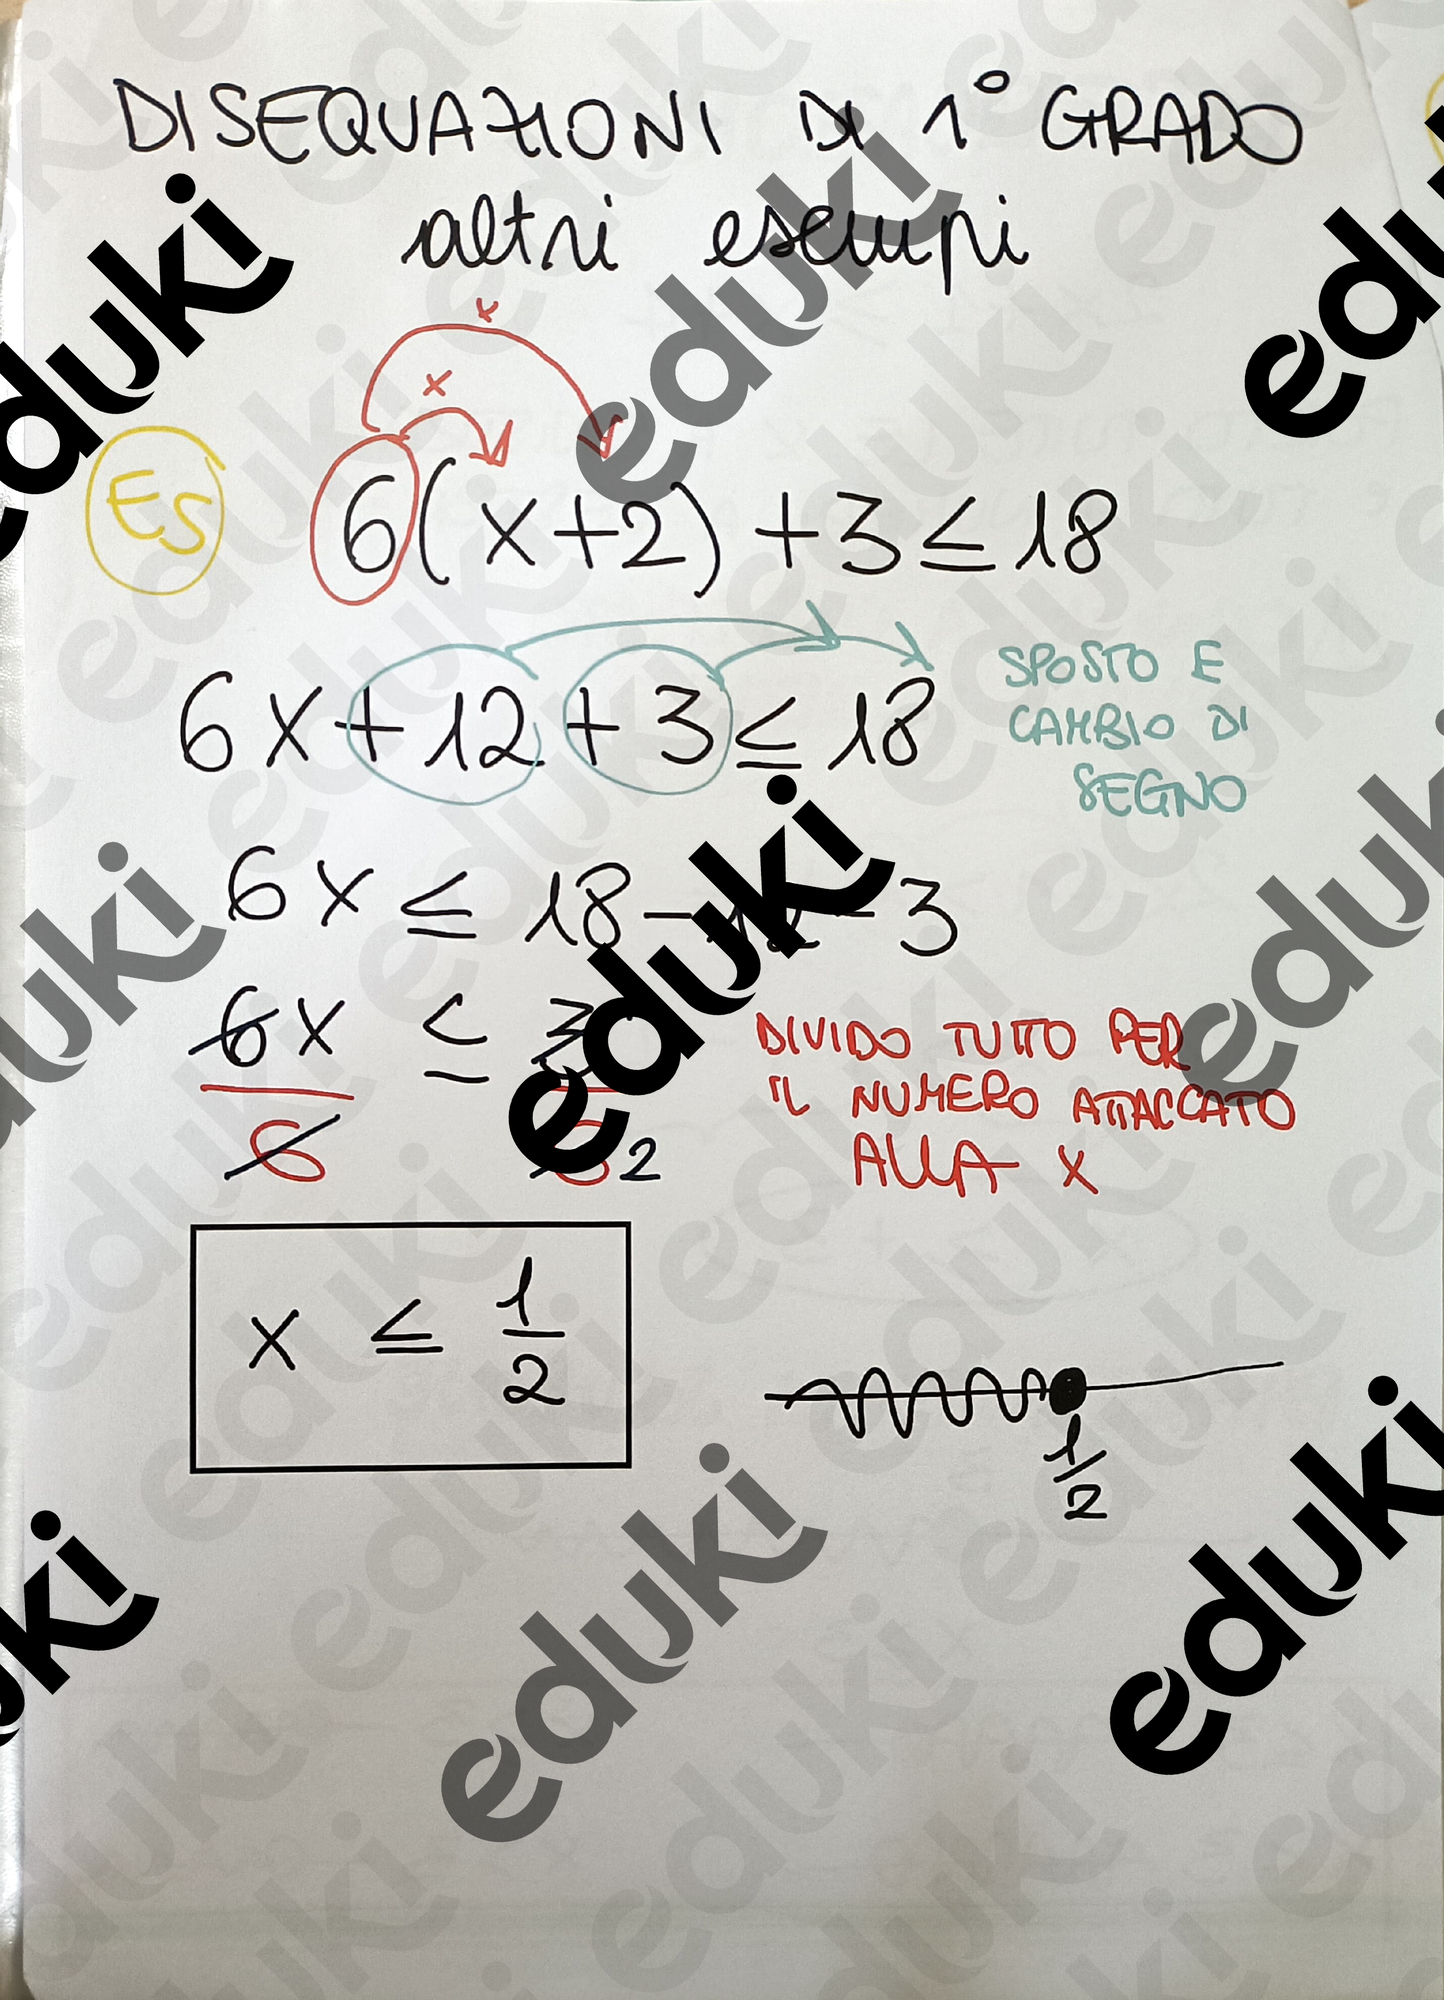 DISEQUAZIONI DI 1° GRADO
altri esempi
x
x
ES
6(x+2) +3 ≤ 18
6x +12 +3 ≤ 18
SPOSTO E
CAMBIO DI
SEGNO
6x ≤ 18 - 12 - 3
6x ≤ 3
6 6 2
DIVIDO TUTTO PER
IL NUMERO ATTACCATO
ALLA X
x ≤ 1/2
1/2
eduki
eduki
eduki
eduki
eduki
eduki
eduki
eduki